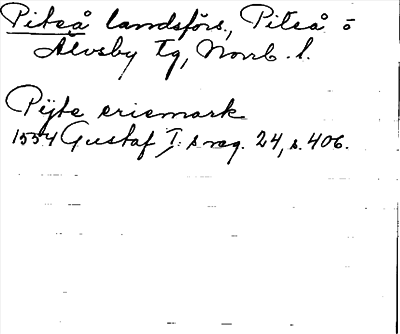 Piteå landsförs., Piteå o
Älvsby tg, Norrb. l.
Pijte eriemark
1554 Gustaf I:s reg. 24, s. 406.